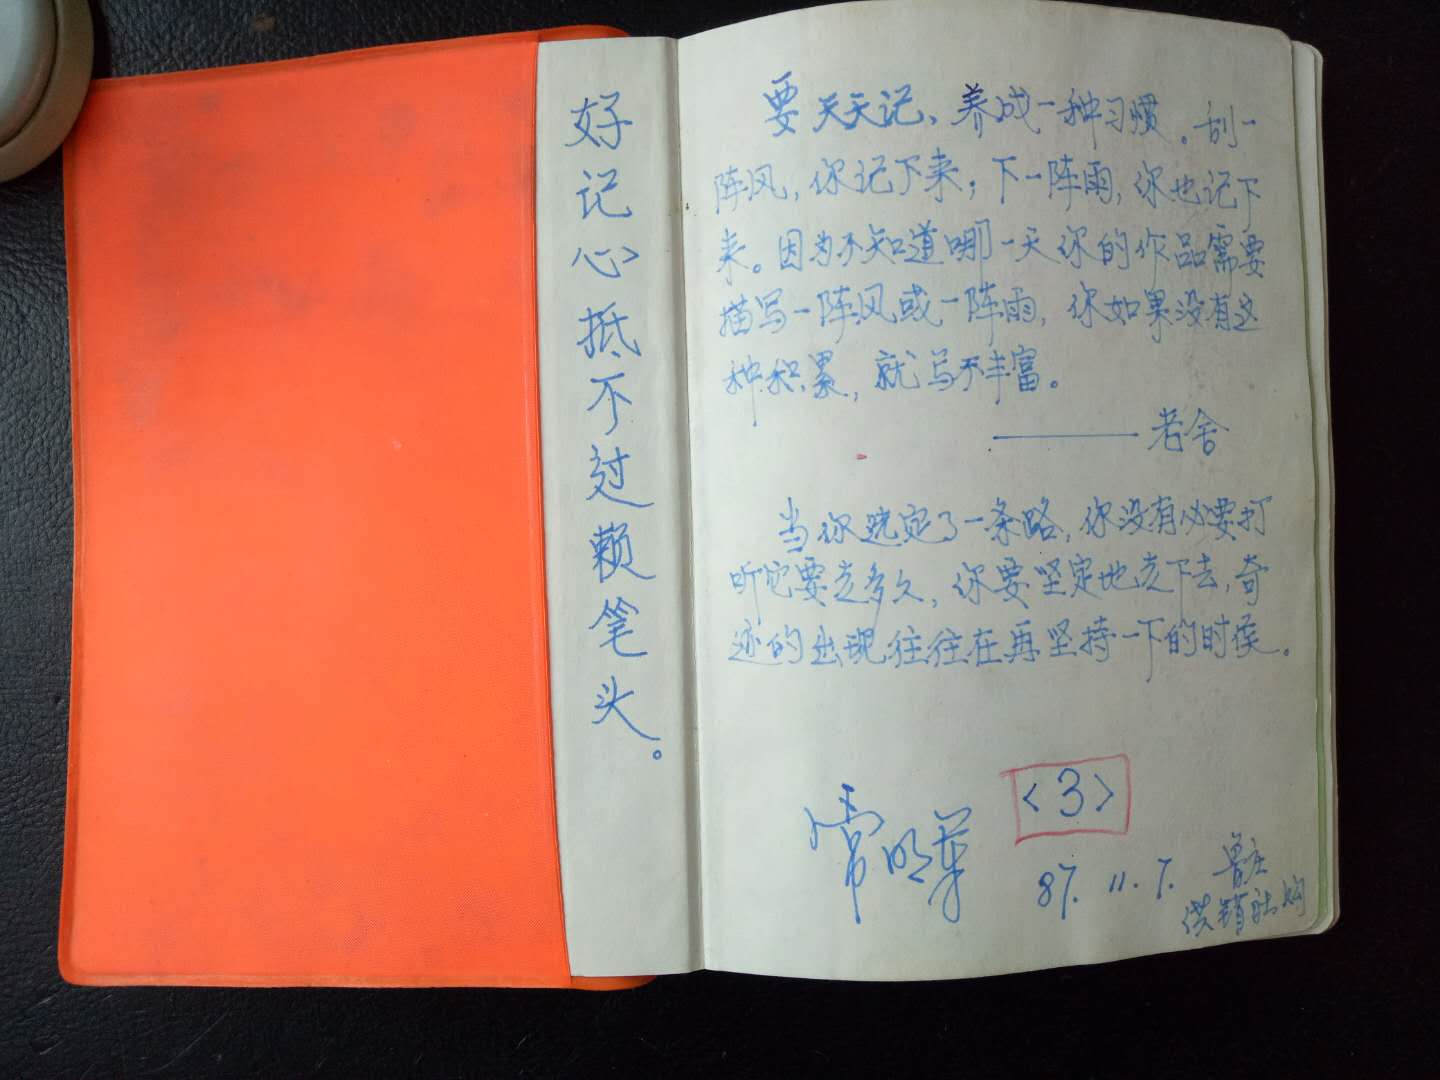 好记心抵不过赖笔头。
要天天记、养成一种习惯。刮一
阵风，你记下来；下一阵雨，你也记下
来。因为不知道哪一天你的作品需要
描写一阵风或一阵雨，你如果没有这
种积累，就写不丰富。
———老舍
当你选定了一条路，你没有必要打
听它要走多久，你要坚定地走下去，奇
迹的出现往往在再坚持一下的时候。
<3>
常明
87.11.7.
鲁庄
供销社购